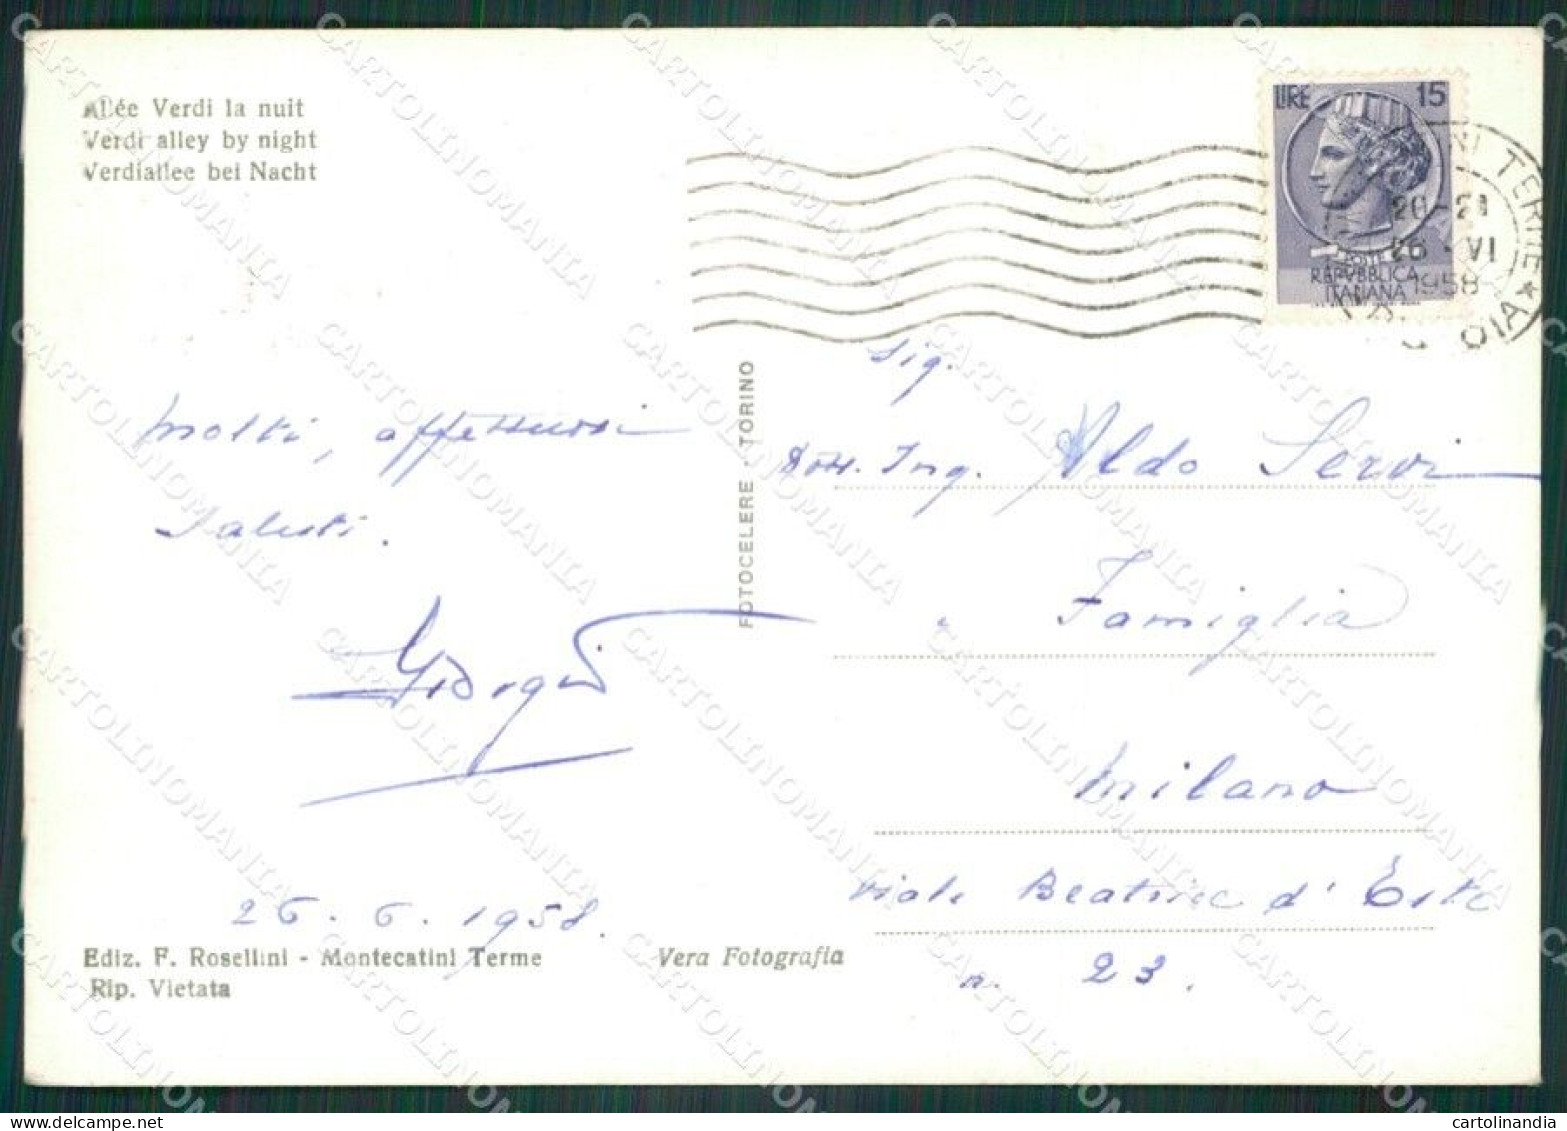 Allée Verdi la nuit
Verdi alley by night
Verdiallee bei Nacht
LIRE 15
POSTE
REPVBBLICA
ITALIANA
NI TERME *
20-21
26 - VI
1958
OIA
FOTOCELERE - TORINO
molti, affettuosi
saluti.
Giorgio
26. 6. 1958.
Sig.
Dott. Ing. Aldo Servi
e Famiglia
Milano
viale Beatrice d'Este
n. 23.
Ediz. F. Rosellini - Montecatini Terme
Rip. Vietata
Vera Fotografia
CARTOLINOMANIA
cartolinandia